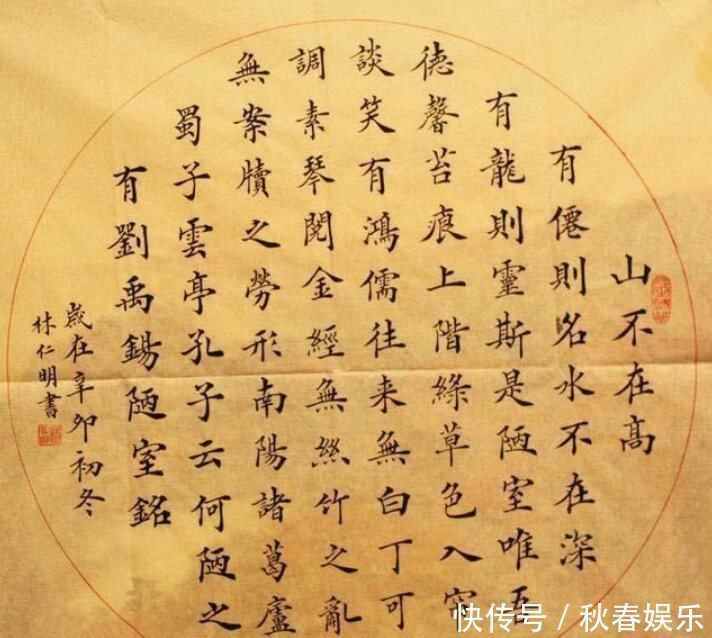 山不在高
有僊則名水不在深
有龍則靈斯是陋室唯吾
德馨苔痕上階綠草色入
談笑有鴻儒往来無白丁可
調素琴閱金經無絲竹之亂
無案牘之勞形南陽諸葛廬
蜀子雲亭孔子云何陋之
有劉禹錫陋室銘
歲在辛卯初冬
林仁明書
快传号 / 秋春娱乐